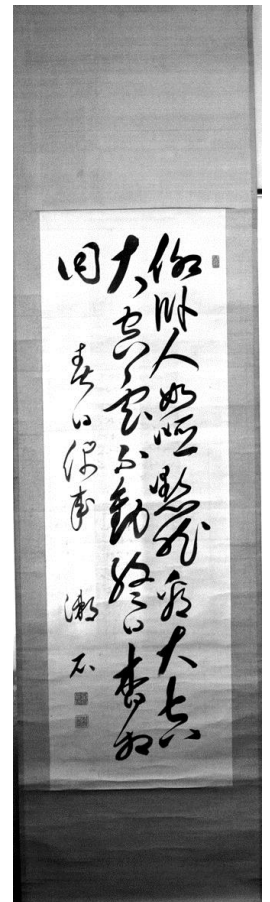 仰臥人如啞黙然看大空
大空雲不動終日杳相
同
春日偶成 漱石